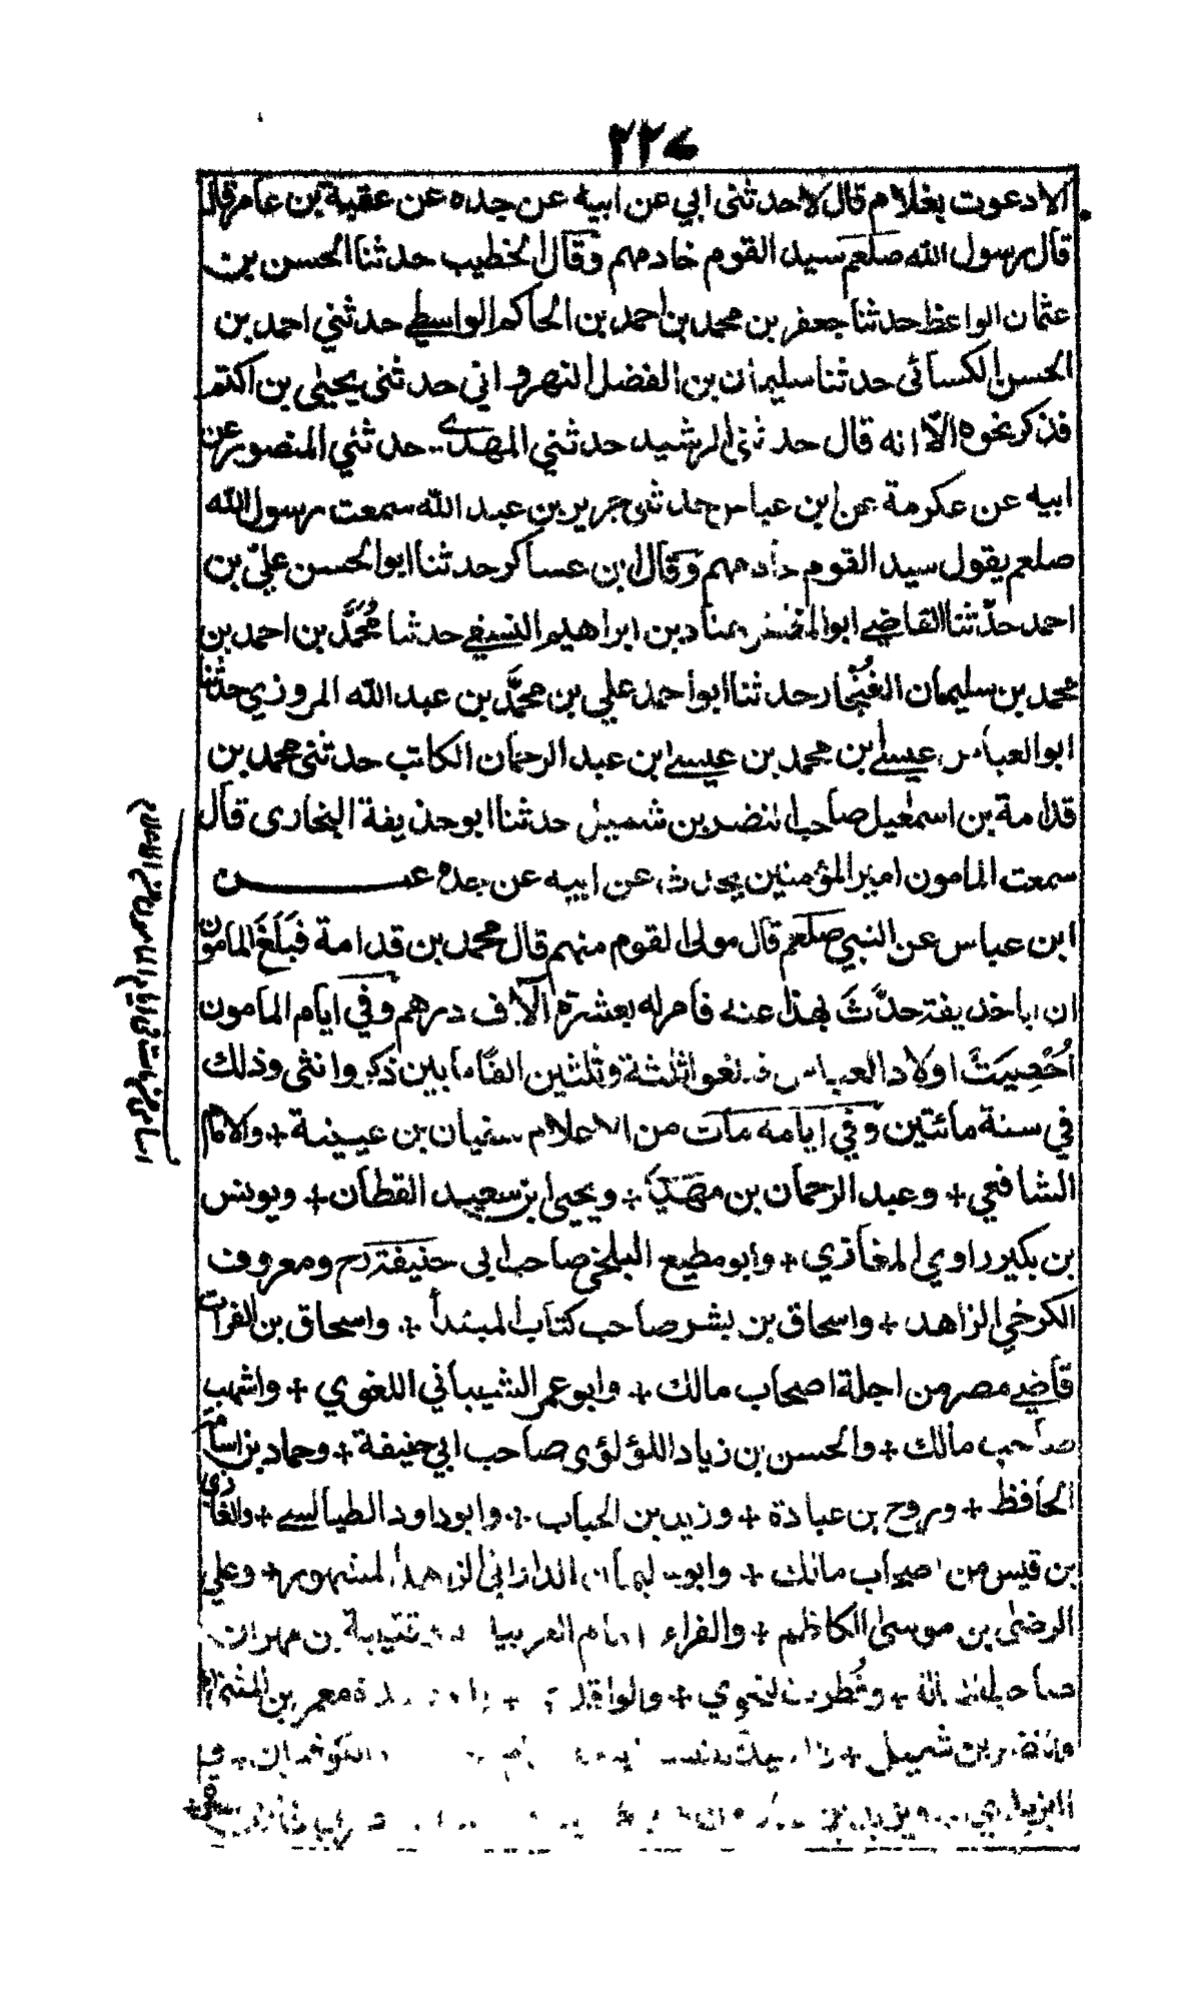 ٢٢٧
الا دعوت بغلام قال لا حدثنى ابي عن ابيه عن جده عن عقبة بن عامر قال
قال رسول الله صلعم سيد القوم خادمهم وقال الخطيب حدثنا الحسن بن
عثمان الواعظ حدثنا جعفر بن محمد بن احمد بن الحاكم الواسطي حدثني احمد بن
الحسن الكسائى حدثنا سليمان بن الفضل النهروانى حدثنى يحيى بن اكثم
فذكر نحوه الّا انه قال حدثنى الرشيد حدثني المهدي حدثني المنصور عن
ابيه عن عكرمة عن ابن عباس حدثنى جرير بن عبد الله سمعت رسول الله
صلعم يقول سيد القوم خادمهم وقال ابن عساكر حدثنا ابو الحسن علي بن
احمد حدّثنا القاضي ابو المظفر هناد بن ابراهيم النسفي حدثنا مُحُمَّد بن احمد بن
محمد بن سليمان الغُنْجار حدثنا ابو احمد علي بن محمَّد بن عبد الله المروزي حدثنا
ابو العباس عيسى بن محمد بن عيسى بن عبد الرحمان الكاتب حدثنى محمد بن
قدامة بن اسمعيل صاحب النضر بن شميل حدثنا ابو حذيفة البخارى قال
سمعت المامون امير المؤمنين يحدث عن ابيه عن جده عن
ابن عباس عن النبي صلعم قال مولى القوم منهم قال محمد بن قدامة فَبَلَغَ المامون
ان ابا حذيفة حدَّثَ بهذا عنه فامر له بعشرة آلاف درهم وفي ايام المامون
اُحْصِيَتْ اولاد العباس فبلغوا ثلثة وثلثين الفًا ما بين ذكر وانثى وذلك
في سنة مائتين وفي ايامه مات من الاعلام سفيان بن عيينة + والامام
الشافعي + وعبد الرحمان بن مهدي + ويحيى بن سعيد القطان + ويونس
بن بكير راوي المغازي + وابو مطيع البلخي صاحب ابى حنيفة رح ومعروف
الكرخي الزاهد + واسحاق بن بشر صاحب كتاب المبتدأ + واسحاق بن الفرات
قاضي مصر من اجلة اصحاب مالك + وابو عمر الشيباني اللغوي + واشهب
صاحب مالك + والحسن بن زياد اللؤلؤى صاحب ابي حنيفة + وحماد بن اسامة
الحافظ + وروح بن عبادة + وزيد بن الحباب + وابو داود الطيالسي + والغازي
بن قيس من اصحاب مالك + وابو سليمان الدارانى الزاهد المشهور + وعلي
الرضى بن موسى الكاظم + والفراء امام العربية + وقتيبة بن مهران
صاحب الامالة + وقُطرب النحوي + والواقدي + معمر بن المثنى
والنضر بن شميل +